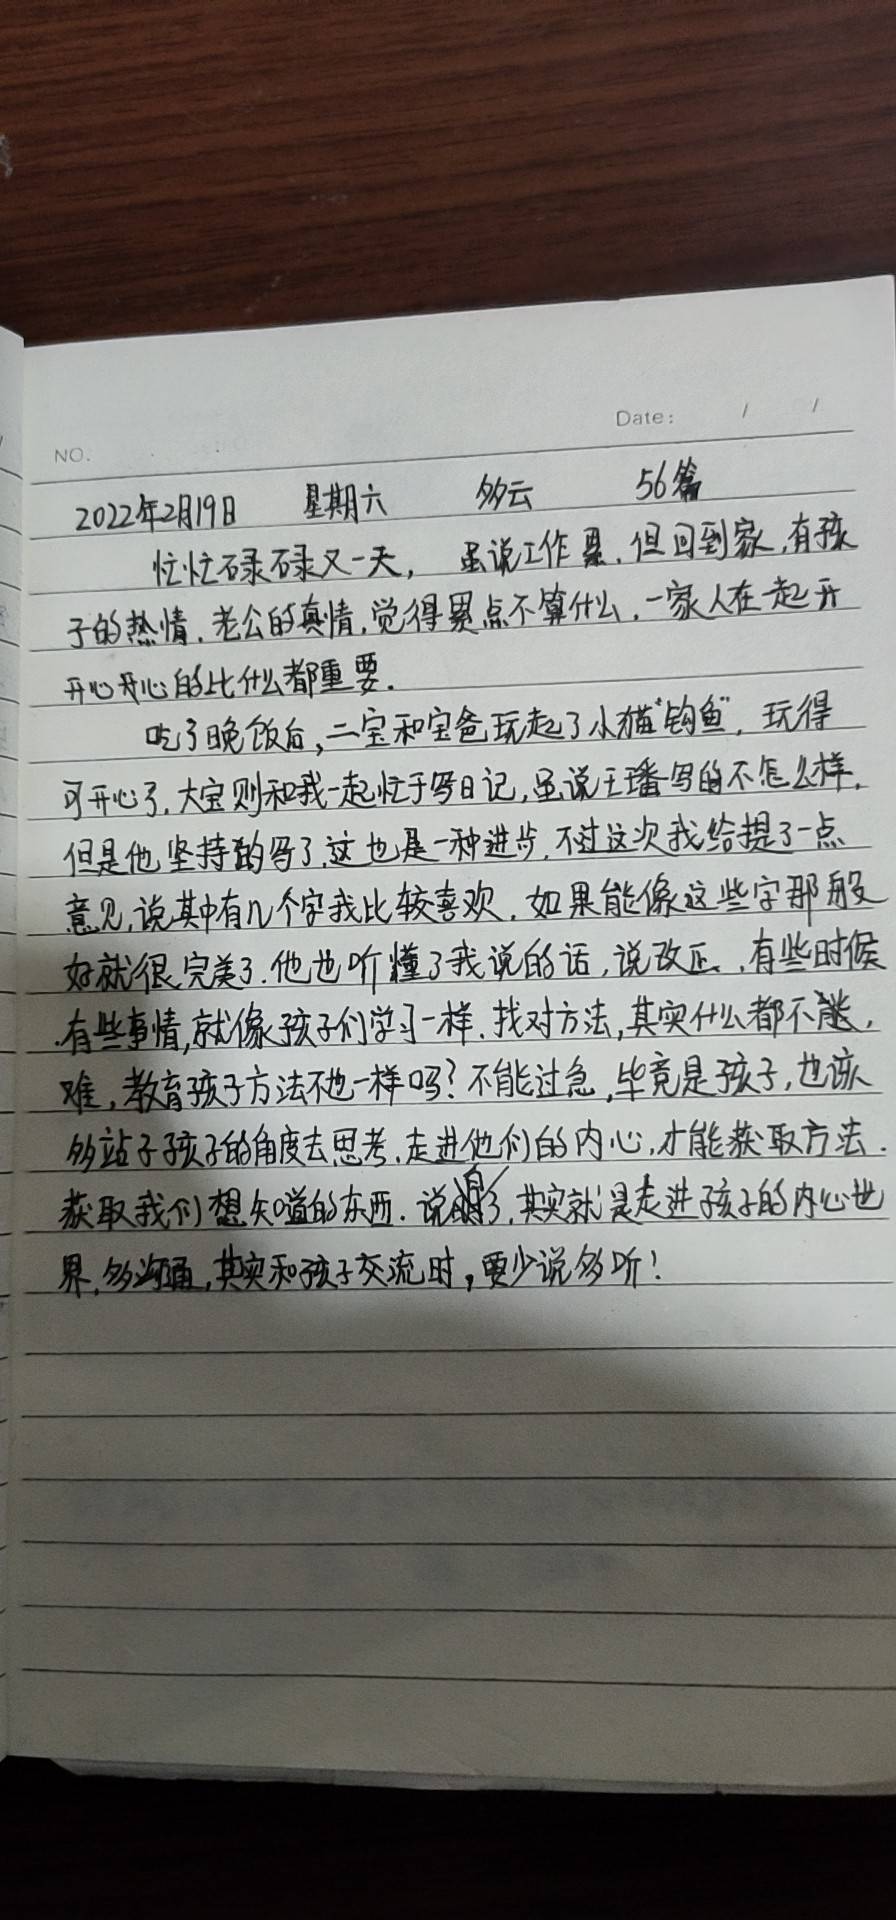 Date: / /
NO.
2022年2月19日 星期六 多云 56篇
忙忙碌碌又一天,虽说工作累,但回到家,有孩
子的热情,老公的真情,觉得累点不算什么,一家人在一起开
开心开心的比什么都重要.
吃了晚饭后,二宝和宝爸玩起了小猫“钩鱼”,玩得
可开心了,大宝则和我一起忙于写日记,虽说王璠写的不怎么样,
但是他坚持的写了,这也是一种进步,不过这次我给提了一点
意见,说其中有几个字我比较喜欢,如果能像这些字那般
好就很完美了.他也听懂了我说的话,说改正.,有些时候
有些事情,就像孩子们学习一样.找对方法,其实什么都不难,
难,教育孩子方法不也一样吗?不能过急,毕竟是孩子,也该
多站于孩子的角度去思考,走进他们的内心,才能获取方法.
获取我们想知道的东西.说了,其实就是走进孩子的内心世
界,多沟通,其实和孩子交流时,要少说多听!